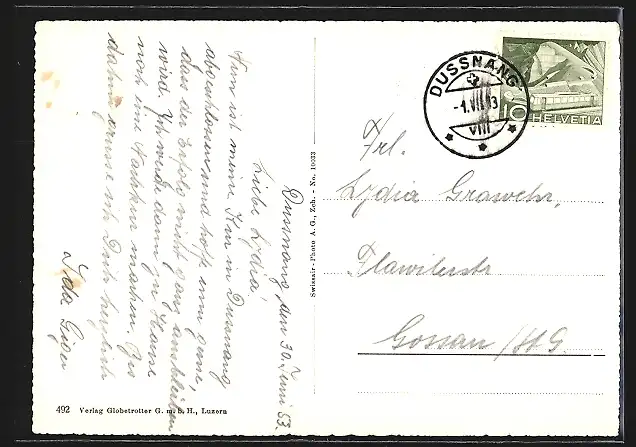 Dussnang, den 30. Juni 53.
Liebe Lydia!
Nun ist meine Kur in Dussnang
abgeschlossen und hoffe nun gerne,
dass der Erfolg nicht ganz ausbleiben
wird. Ich werde dann zu Hause
noch eine Nachkur machen. Bis
dahin grüsse ich Dich herzlich
Ida Giger
492 Verlag Globetrotter G. m. b. H., Luzern
Swissair-Photo A. G., Zch. - No. 19033
DUSSNANG
-1.VII 53
VIII
10 HELVETIA
Frl.
Lydia Grawehr,
Flawilerstr
Gossau/St G.